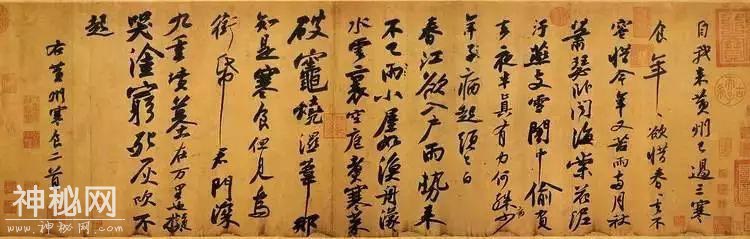 自我来黄州已過三寒
食年〻欲惜春〻去不
容惜今年又苦雨兩月秋
蕭瑟卧聞海棠花泥
汙燕支雪闇中偷負
去夜半真有力何殊少
年子病起頭已白
春江欲入户雨勢来
不已雨小屋如漁舟濛〻
水雲裏空庖煮寒菜
破竈燒濕葦那
知是寒食但見烏
銜帋君門深
九重墳墓在万里也擬
哭塗窮死灰吹不
起
右黄州寒食二首
神秘网
www.shenmiwang.com